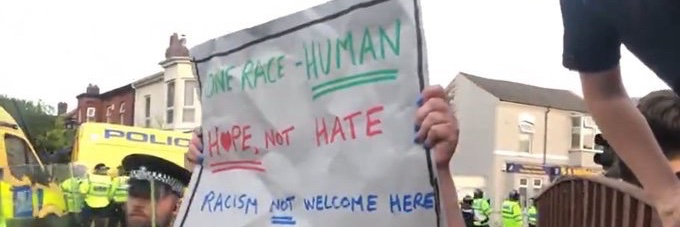 ONE RACE - HUMAN
HOPE, NOT HATE
RACISM NOT WELCOME HERE
POLIC